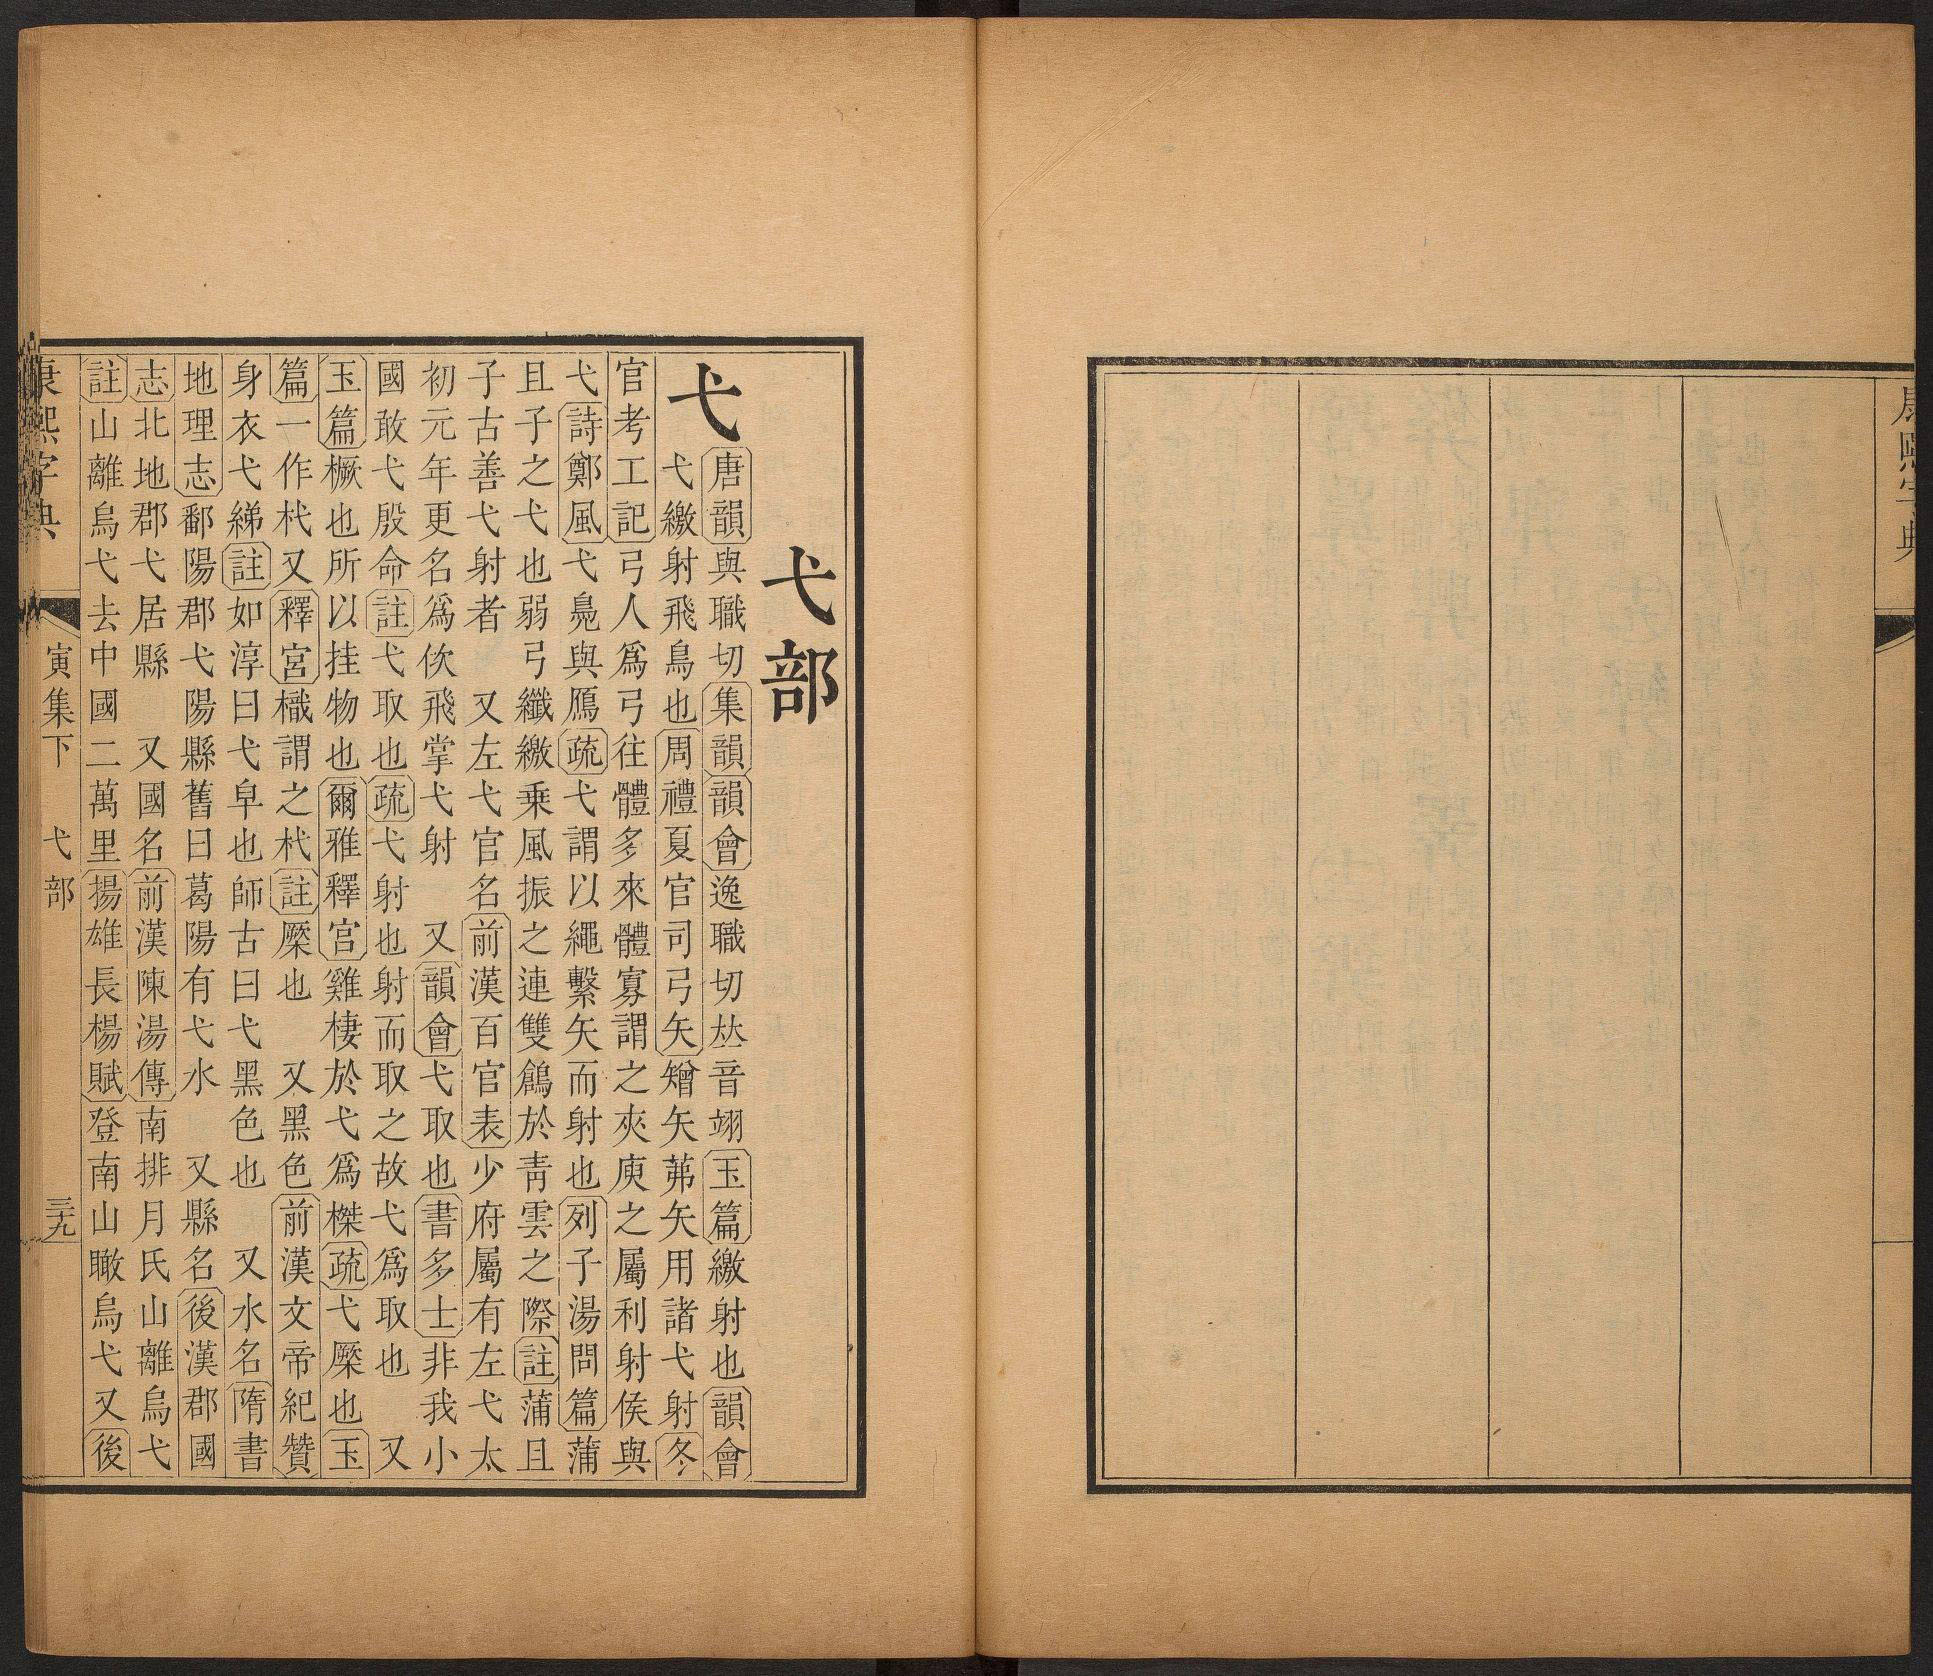 康熙字典
弋部
弋唐韻與職切集韻韻會逸職切𠀤音翊玉篇繳射也韻會
弋繳射飛鳥也周禮夏官司弓矢矰矢茀矢用諸弋射冬
官考工記弓人爲弓往體多來體寡謂之夾庾之屬利射侯與
弋詩鄭風弋鳧與鴈疏弋謂以繩繫矢而射也列子湯問篇蒲
且子之弋也弱弓纖繳乗風振之連雙鶬於靑雲之際註蒲且
子古善弋射者 又左弋官名前漢百官表少府屬有左弋太
初元年更名爲佽飛掌弋射 又韻會弋取也書多士非我小
國敢弋殷命註弋取也疏弋射也射而取之故弋爲取也 又
玉篇橛也所以挂物也爾雅釋宮雞棲於弋爲榤疏弋橜也玉
篇一作杙又釋宮樴謂之杙註橜也 又黑色前漢文帝紀贊
身衣弋綈註如淳曰弋皁也師古曰弋黑色也 又水名隋書
地理志鄱陽郡弋陽縣舊曰葛陽有弋水 又縣名後漢郡國
志北地郡弋居縣 又國名前漢陳湯傳南排月氏山離烏弋
註山離烏弋去中國二萬里揚雄長楊賦登南山瞰烏弋又後
康熙字典 寅集下 弋部 三九